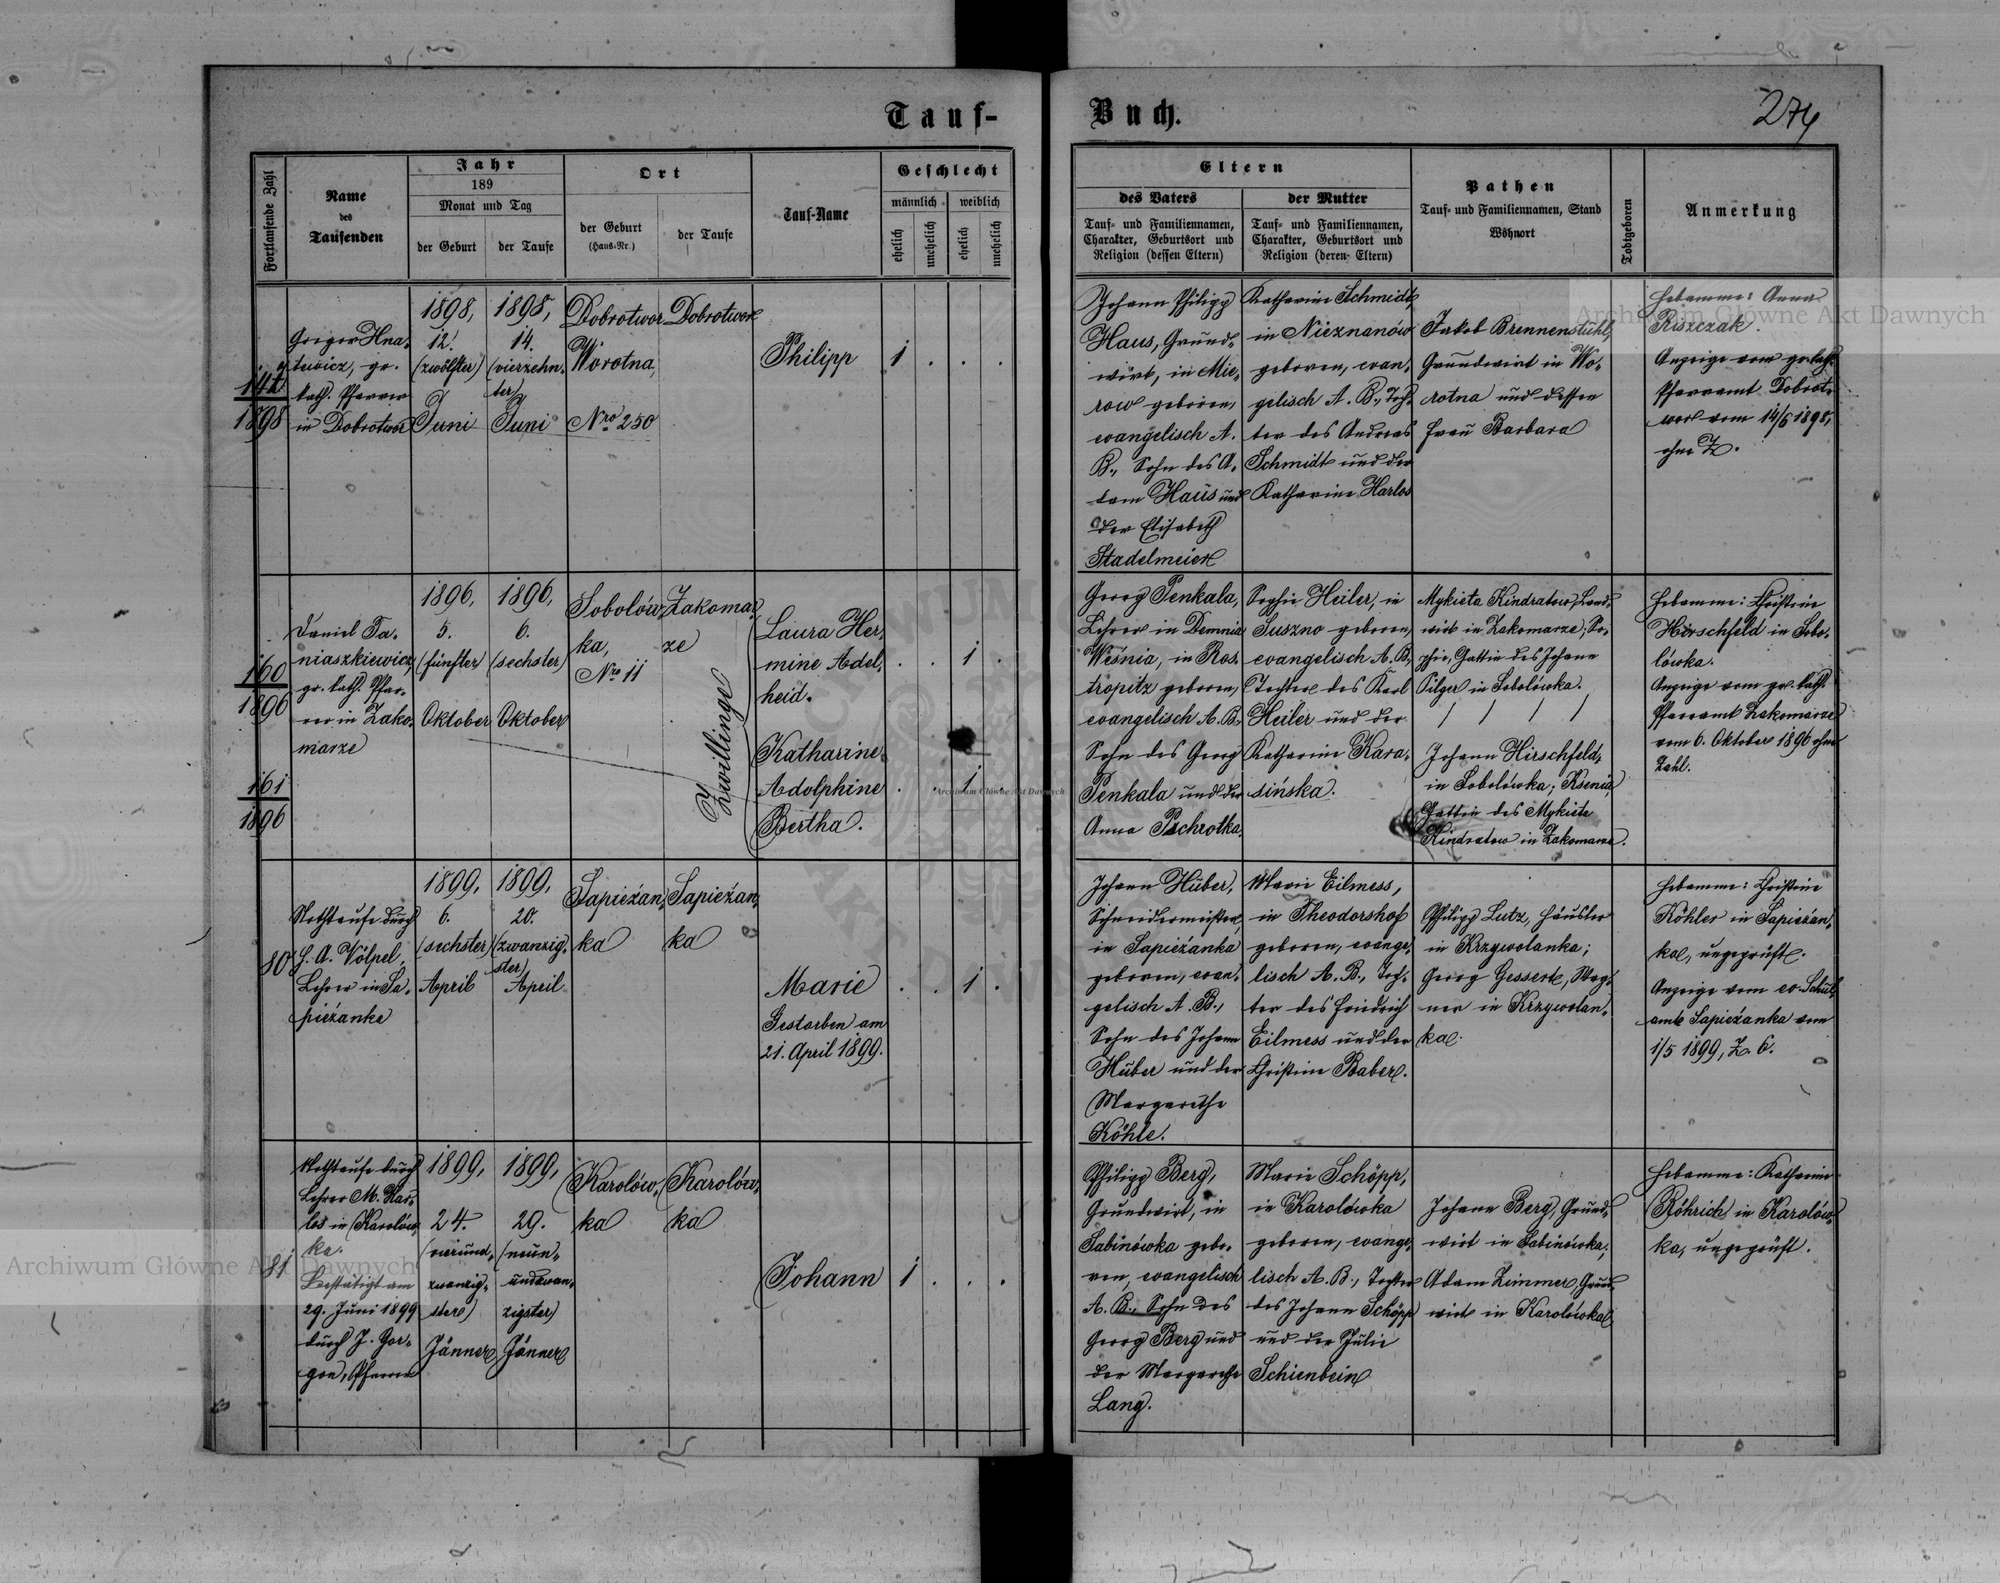 Tauf-
Buch.
274
Fortlaufende Zahl
Name
des
Taufenden
Jahr
189
Monat und Tag
der Geburt
der Taufe
Ort
der Geburt
(Haus-Nr.)
der Taufe
Tauf-Name
Geschlecht
männlich
weiblich
ehelich
unehelich
ehelich
unehelich
Eltern
des Vaters
Tauf- und Familiennamen,
Charakter, Geburtsort und
Religion (dessen Eltern)
der Mutter
Tauf- und Familiennamen,
Charakter, Geburtsort und
Religion (deren Eltern)
Pathen
Tauf- und Familiennamen, Stand
Wohnort
Todtgeboren
Anmerkung
1898
Gregor Hna-
tewicz, gr.
kath. Pfarrer
in Dobrotwor
1898,
12.
(zwölfter)
Juni
1898,
14.
(vierzehn-
ter)
Juni
Dobrotwor
Worotna,
Nro 250
Dobrotwor
Philipp
1 . . .
Johann Philipp
Haus, Grund-
wirt, in Mie-
row geboren,
evangelisch A.
B., Sohn des A-
dam Haus und
der Elisabeth
Stadelmeier
Katharine Schmidt,
in Nieznanów
geboren, evan-
gelisch A. B., Toch-
ter des Andreas
Schmidt und der
Katharine Harlos
Jakob Brennenstuhl,
Grundwirt in Wo-
rotna und dessen
Frau Barbara
Hebamme: Anna
Riszczak.
Anzeige vom gr. kath.
Pfarramt Dobrot-
wor vom 14/6 1898,
ohne Z.
160
1896
161
1896
Daniel Ta-
niaszkiewicz,
gr. kath. Pfar-
rer in Zako-
marze
1896,
5.
(fünfter)
Oktober
1896,
6.
(sechster)
Oktober
Sobolów-
ka,
Nro 11
Zakomar-
ze
Zwillinge
Laura Her-
mine Adel-
heid.
. . 1 .
Katharine
Adolphine
Bertha.
. . 1
Georg Penkala,
Lehrer in Demnia
Wésnia, in Ros-
tropitz geboren,
evangelisch A. B.,
Sohn des Georg
Penkala und der
Anna Pschrotka.
Sophie Heiler, in
Suszno geboren,
evangelisch A. B.,
Tochter des Karl
Heiler und der
Katharine Kara-
sińska.
Mykieta Kindratow, Land-
wirt in Zakomarze; So-
phie, Gattin des Johann
Pilger in Sobolówka.
/ / / /
Johann Hirschfeld,
in Sobolówka; Ksenia,
Gattin des Mykieta
Kindratow in Zakomarze.
Hebamme: Christine
Hirschfeld in Sobo-
lówka.
Anzeige vom gr. kath.
Pfarramt Zakomarze
vom 6. Oktober 1896 ohne
Zahl.
80
Nothtaufe durch
H. A. Völpel,
Lehrer in Sa-
pieżanka
1899,
6.
(sechster)
April
1899,
20.
(zwanzig-
ster)
April
Sapieżan-
ka
Sapieżan-
ka
Marie
Gestorben am
21. April 1899.
. . 1 .
Johann Huber,
Schneidermeister,
in Sapieżanka
geboren, evan-
gelisch A. B.,
Sohn des Johann
Huber und der
Margarethe
Köhle.
Marie Eilmess,
in Theodorshof
geboren, evange-
lisch A. B., Toch-
ter des Friedrich
Eilmess und der
Christine Baber.
Philipp Lutz, Häusler
in Krzywolanka;
Georg Gessert, Wag-
ner in Krzywolan-
ka.
Hebamme: Christine
Köhler in Sapieżan-
ka, ungeprüft.
Anzeige vom ev. Schul-
amte Sapieżanka vom
1/5 1899, Z. 6.
81
Nothtaufe durch
Lehrer M. Har-
los in Karolów-
ka.
Bestätigt am
29. Juni 1899
durch J. Gor-
gon, Pfarrer
1899,
24.
(vierund-
zwanzig-
ster)
Jänner
1899,
29.
(neun-
undzwan-
zigster)
Jänner
Karolów-
ka
Karolów-
ka
Johann
1 . . .
Philipp Berg,
Grundwirt, in
Sabinówka gebo-
ren, evangelisch
A. B., Sohn des
Georg Berg und
der Margarethe
Lang.
Marie Schöpp,
in Karolówka
geboren, evange-
lisch A. B., Tochter
des Johann Schöpp
und der Julie
Schienbein
Johann Berg, Grund-
wirt in Sabinówka;
Adam Zimmer, Grund-
wirt in Karolówka
Hebamme: Katharine
Röhrich in Karolów-
ka, ungeprüft.
Archiwum Główne Akt Dawnych
Archiwum Główne Akt Dawnych
Archiwum Główne Akt Dawnych